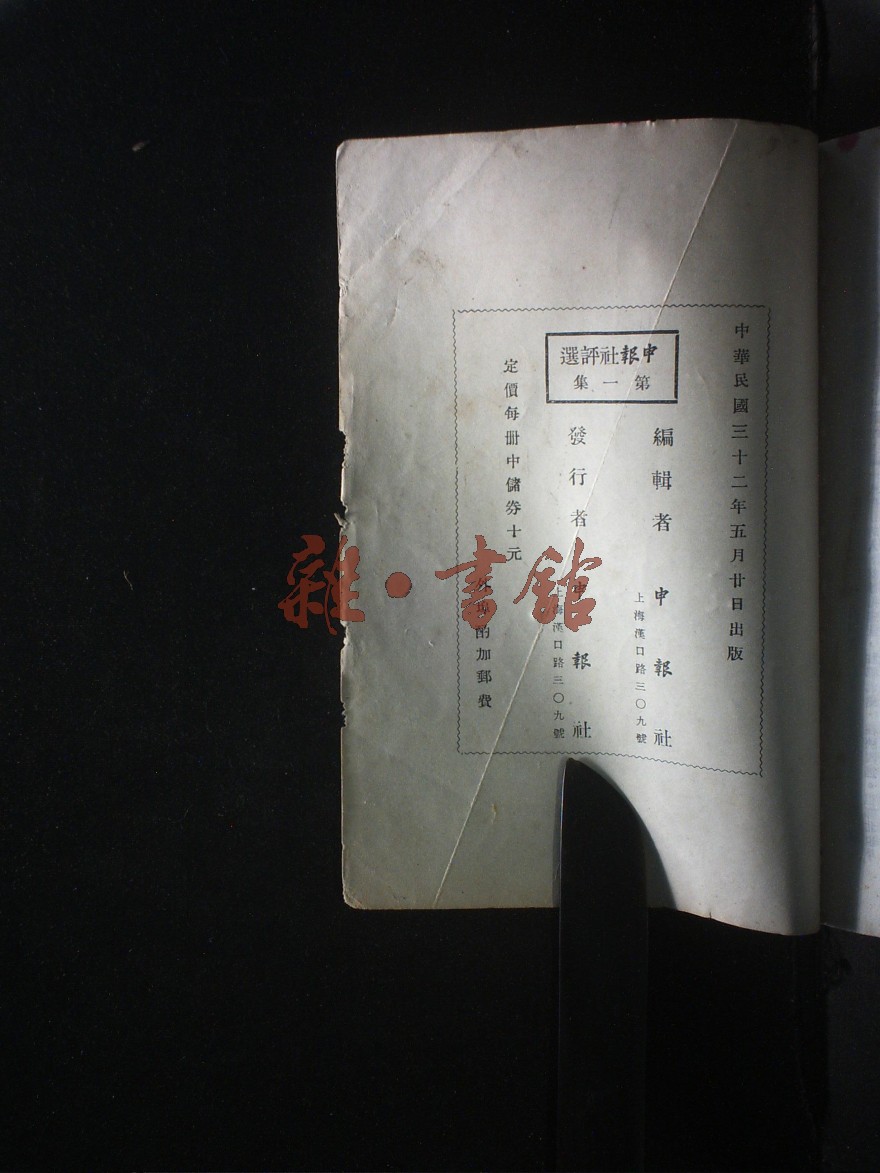 中華民國三十二年五月廿日出版
申報社評選
第一集
編輯者 申報社
上海漢口路三〇九號
發行者 申報社
上海漢口路三〇九號
定價每册中儲券十元
外埠酌加郵費
雜·書館